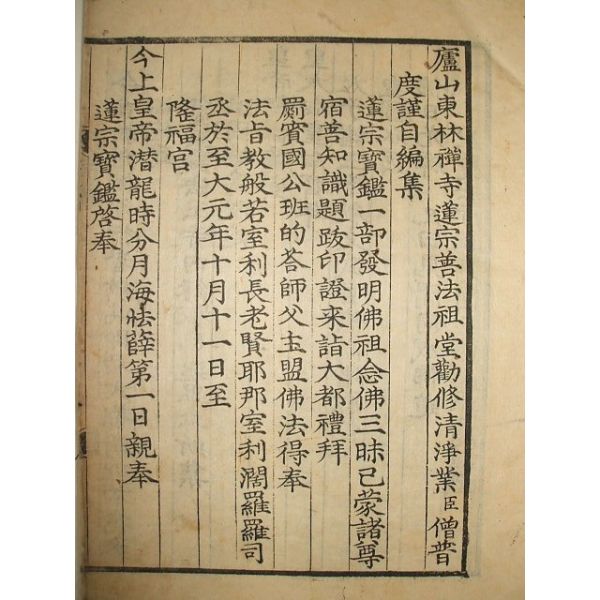 廬山東林禪寺蓮宗善法祖堂勸修清淨業臣僧普
度謹自編集
蓮宗寶鑑一部發明佛祖念佛三昧已蒙諸尊
宿善知識題跋印證來詣大都禮拜
罽賓國公班的荅師父主盟佛法得奉
法旨教般若室利長老賢耶那室利濶羅羅司
丞於至大元年十月十一日至
隆福宮
今上皇帝潜龍時分月海怯薛第一日親奉
蓮宗寶鑑啓奉